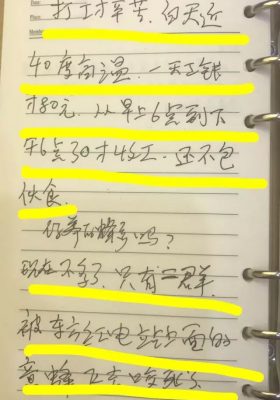 打工才辛苦，白天近
40度高温，一天工钱
才80元，从早上6点到下
午6点30才收工，还不包
伙食。
你养的蜂多吗？
现在不多了，只有二群，
被电站上面的
意蜂咬死了